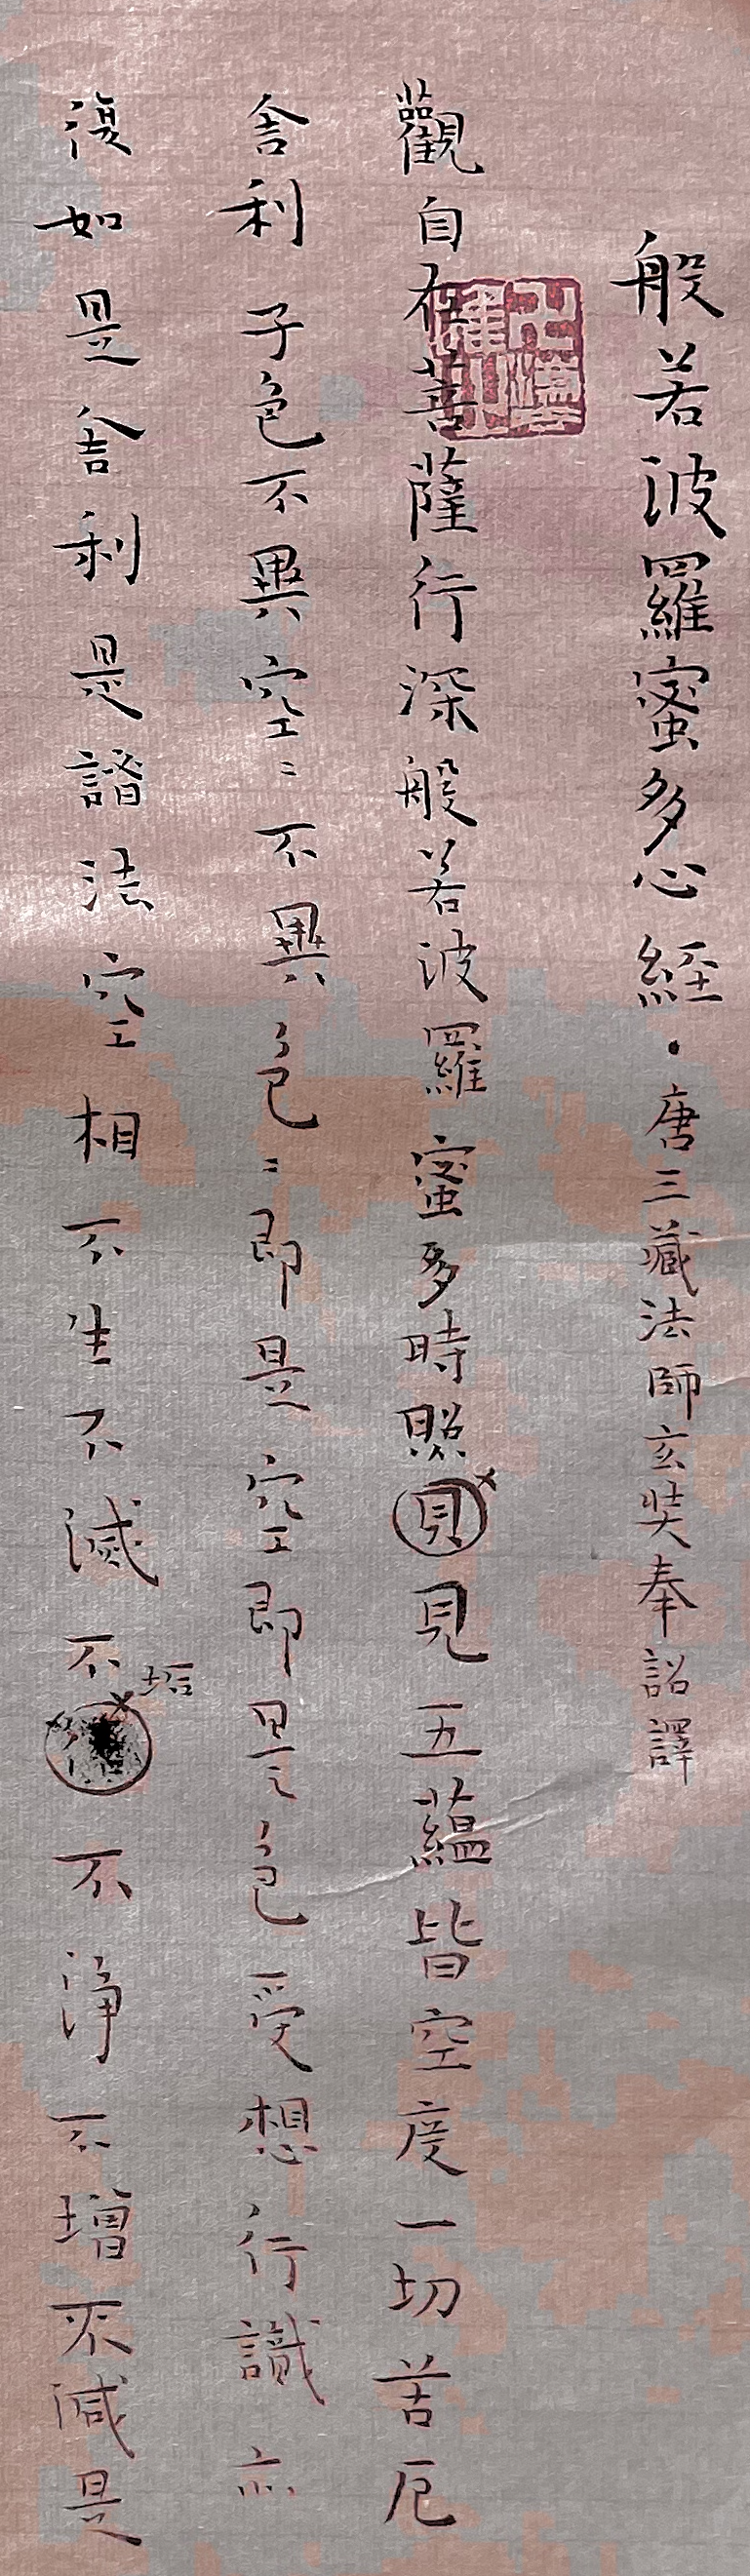 般若波羅蜜多心經·唐三藏法師玄奘奉詔譯
觀自在菩薩行深般若波羅蜜多時照見見五蘊皆空度一切苦厄
舍利子色不異空〻不異色〻即是空即是色受想行識亦
復如是舍利是諸法空相不生不滅不垢不淨不增不減是